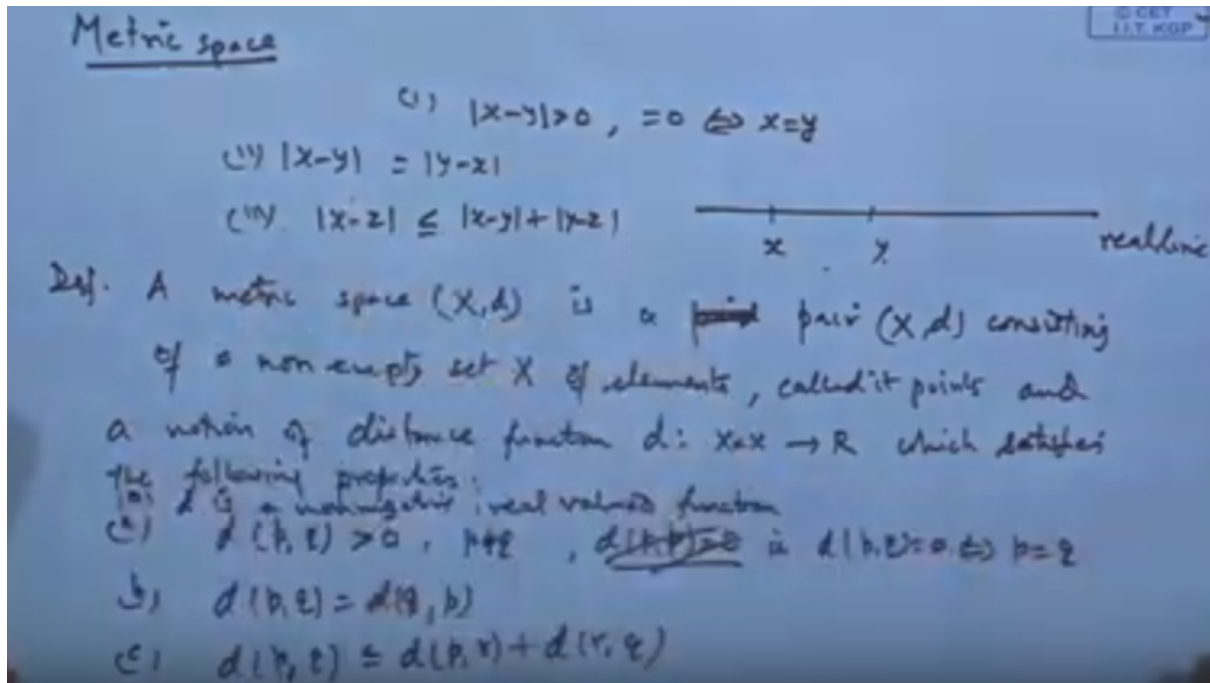 Metric space
© CET
I.I.T. KGP
(i) |x-y|>0, =0 ⇔ x=y
(ii) |x-y| = |y-x|
(iii) |x-z| ≤ |x-y|+|y-z|
x y real line
Def. A metric space (X,d) is a pair (X,d) consisting
of a non empty set X of elements, called it points and
a notion of distance function d: X×X → R which satisfies
the following properties:
d is a nonnegative, real valued function
(a) d(p,q) >0, p≠q, d(p,p)=0 ie d(p,q)=0 ⇔ p=q
(b) d(p,q) = d(q,p)
(c) d(p,q) ≤ d(p,r)+d(r,q)